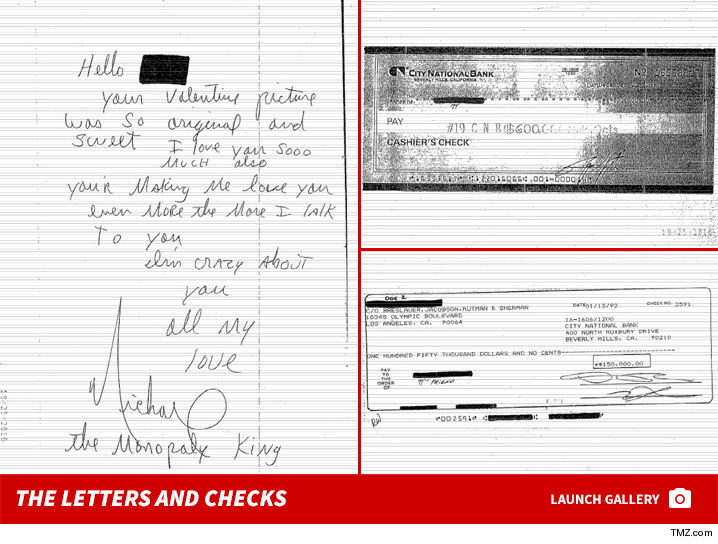 Hello
your Valentine picture
was so original and
sweet I love you sooo
much also
your Making Me love you
even More the More I talk
To you
I'm CRAZY ABOUT
you
all my
love
Michael
the Monopoly King
10/25/2016
CITY NATIONAL BANK
BEVERLY HILLS, CALIFORNIA
ORDER OF
PAY
$600,
CASHIER'S CHECK
10/25/2016
DOE 2
C/O BRESLAUER, JACOBSON, RUTMAN & SHERMAN
10345 OLYMPIC BOULEVARD
LOS ANGELES, CA. 90064
DATE 01/13/92
CHECK NO. 2591
16-1606/1200
CITY NATIONAL BANK
400 NORTH ROXBURY DRIVE
BEVERLY HILLS, CA. 90210
ONE HUNDRED FIFTY THOUSAND DOLLARS AND NO CENTS
**$150,000.00
PAY
TO
THE
ORDER
OF
FRIEND
THE LETTERS AND CHECKS
LAUNCH GALLERY
TMZ.com